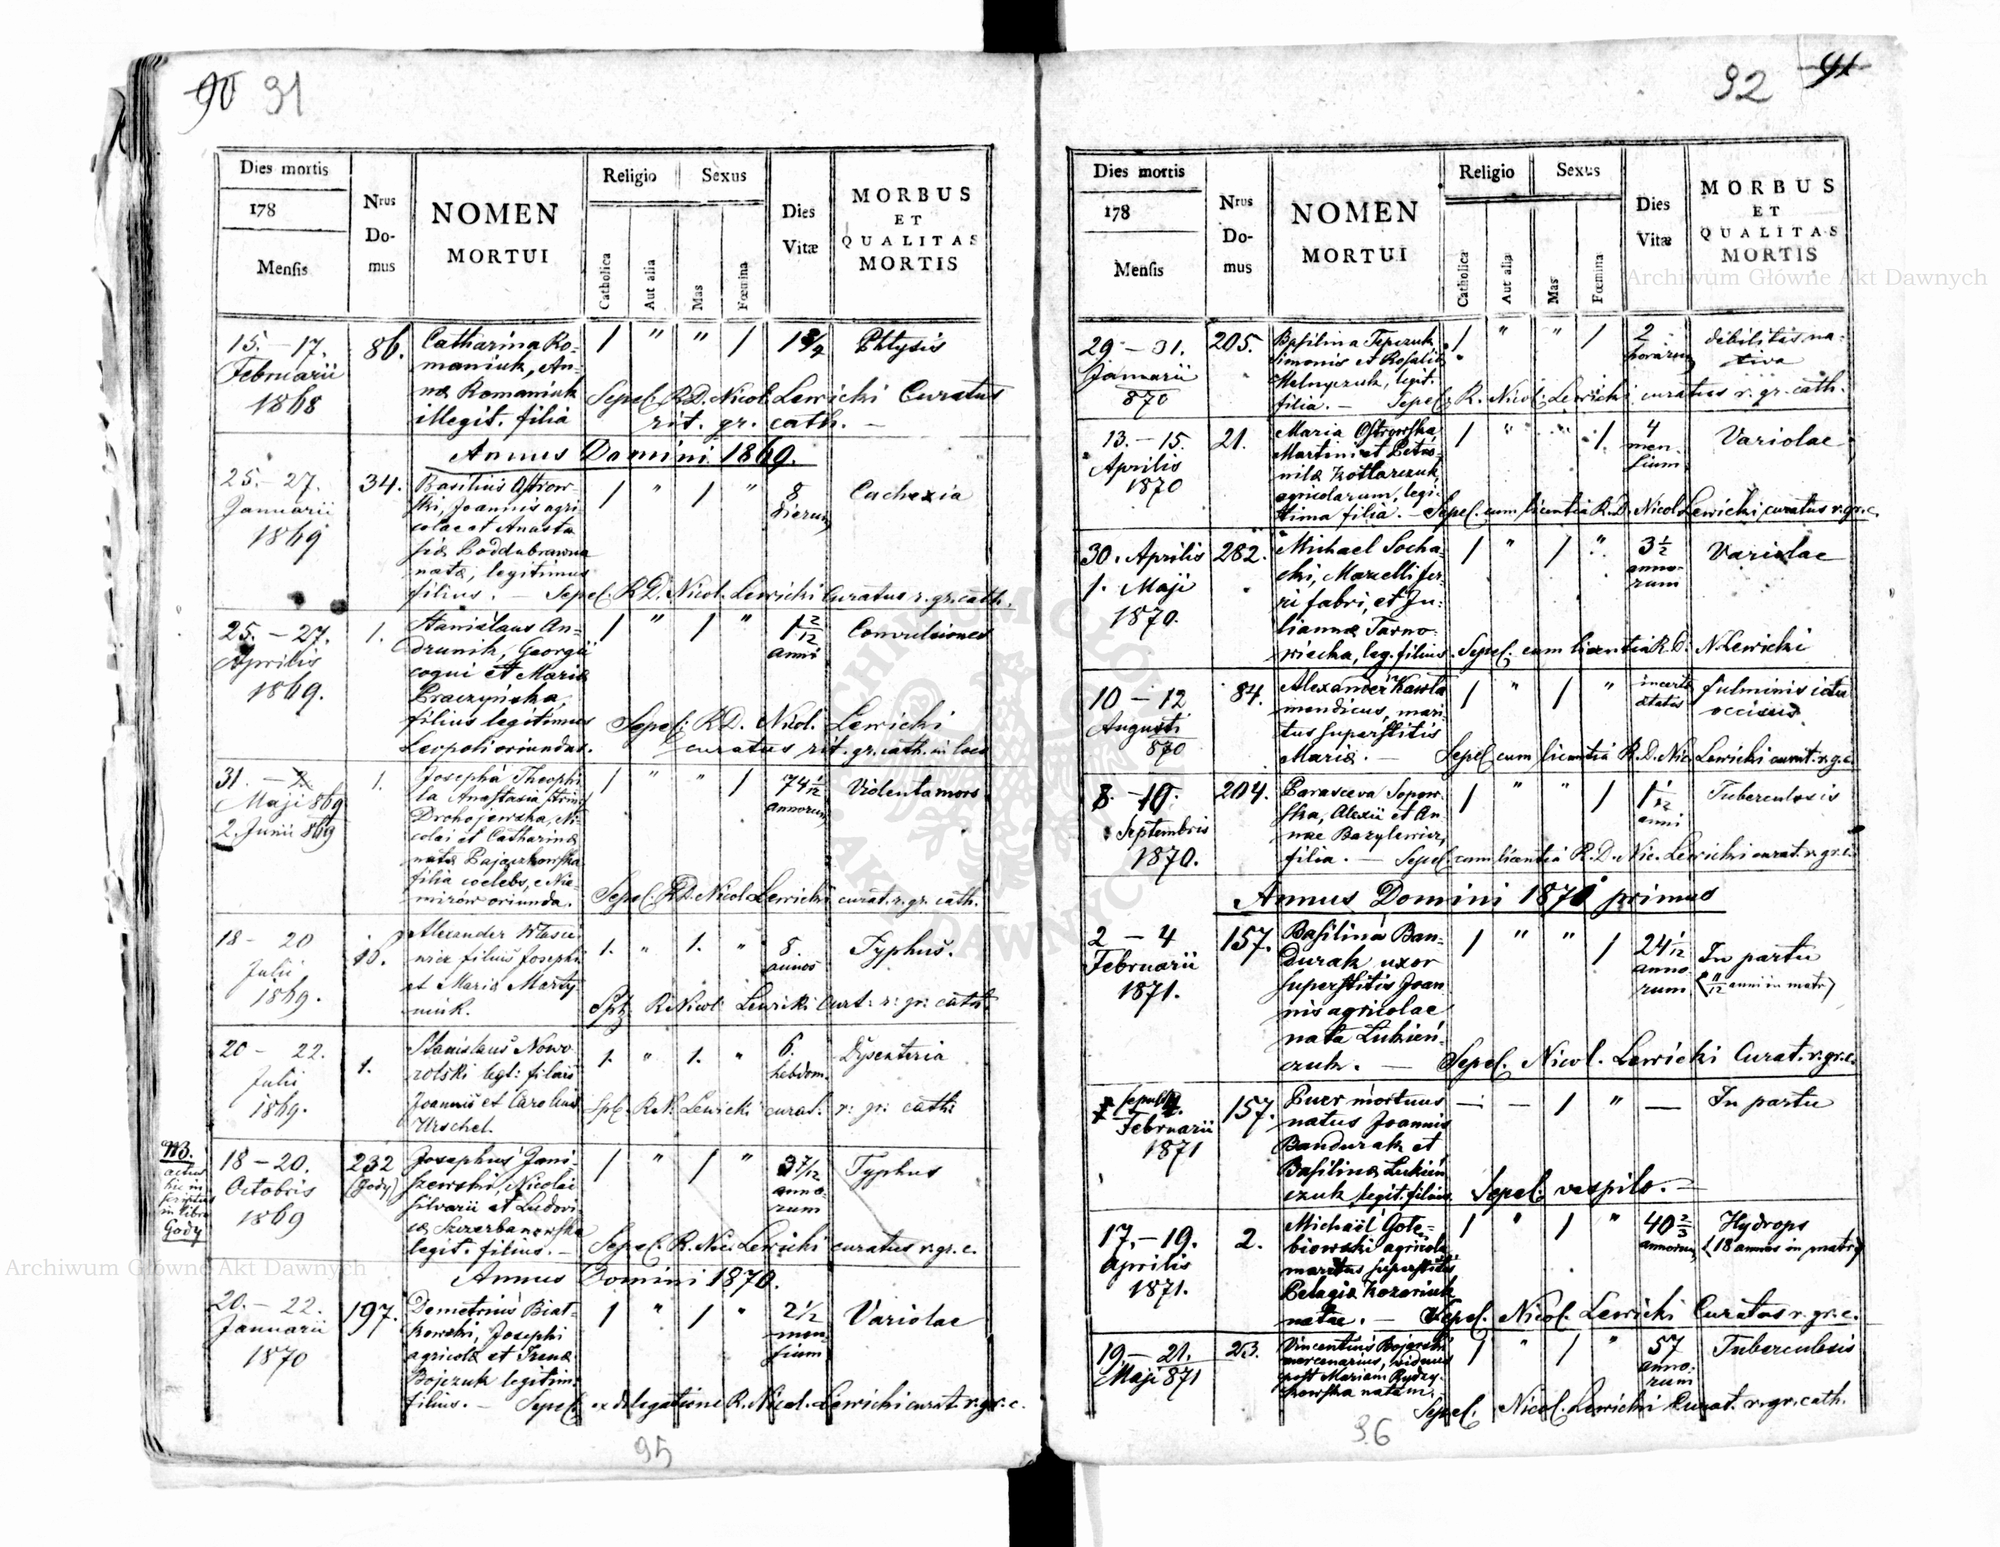 90 91
Dies mortis
178
Mensis
Nrus
Do-
mus
NOMEN
MORTUI
Religio
Sexus
Catholica
Aut alia
Mas
Fœmina
Dies
Vitæ
MORBUS
ET
QUALITAS
MORTIS
15. – 17.
Februarii
1868
86.
Catharina Ro-
maniuk, An-
næ Romaniuk
illegit. filia
/ " " /
Phtysis
Sepel. R.D. Nicol. Lewicki Curatus
rit. gr. cath. –
Annus Domini 1869.
25. – 27.
Januarii
1869
34.
Basilius Ostrow-
ski, Joannis agri
colae et Anasta
siæ Poddubrawna
natæ, legitimus
filius. –
/ " / "
8
dierum
Cachexia
Sepel. R.D. Nicol. Lewicki Curatus r. gr. cath.
25. – 27.
Aprilis
1869.
1.
Stanislaus An-
drunik, Georgii
coqui et Mariæ
Praczyńska,
filius legitimus
Leopoli oriundus.
/ " / "
1 2/12
anni
Convulsiones
Sepel. R.D. Nicol. Lewicki
curatus rit. gr. cath. in loco
31. –
Maji 869
2. Junii 869
1.
Josepha Theophi
la Anastasia
Drohojowska, Ni
colai et Catharinæ
natæ Pajączkowska
filia coelebs, e Nie-
mirow oriunda.
/ " " /
74 1/12
annorum
Violenta mors
Sepel. R.D. Nicol. Lewicki curat. r. gr. cath.
18 – 20
Julii
1869.
10.
Alexander
filius Josephi
et Mariæ Marty-
niuk.
1. " 1. "
8.
annos
Typhus.
R. Nicol. Lewicki Curt. r. gr. cath.
20 – 22.
Julii
1869.
1.
Stanislaus Nowo
rolski legt: filius
Joannis et Carolina
Urschel.
1. " 1. "
6.
hebdom.
Dysenteria
Spl. R.N. Lewicki curat. r: gr: cath:
NB.
actus
hic in
scriptus
in libro
Gody
18 – 20.
Octobris
1869
232
(Gody)
Josephus Jani-
szewski, Nicolai
silvarii et Ludovi
cæ Szczerbanowska
legit. filius. –
/ " / "
3 7/12
anno-
rum
Typhus
Sepel. R. Nic. Lewicki curatus r. gr. c.
Annus Domini 1870.
20. – 22.
Januarii
1870
197.
Demetrius Biał-
kowski, Josephi
agricolæ et Irenæ
Bojczuk legitim.
filius. –
/ " / "
2 1/2
men
sium
Variolae
Sepel. ex delegatione R. Nicol. Lewicki curat. r. gr. c.
95
92 91
Dies mortis
178
Mensis
Nrus
Do-
mus
NOMEN
MORTUI
Religio
Sexus
Catholica
Aut alia
Mas
Fœmina
Dies
Vitæ
MORBUS
ET
QUALITAS
MORTIS
29 – 31.
Januarii
870
205.
Basilina Tepczuk
Simonis et Rosaliæ
Melnyczuk, legit.
filia. –
/ " " /
2
horarum
debilitas na-
tiva
Sepel. R. Nicol. Lewicki curatus r. gr. cath.
13. – 15.
Aprilis
1870
21.
Maria Ostrowska
Martini et Petro-
nilæ Kotlarczuk,
agricolarum, legi-
tima filia. –
/ " " /.
4
men-
sium
Variolae
Sepel. cum licentia R.D. Nicol Lewicki curatus r. gr. c.
30. Aprilis
1. Maji
1870.
282.
Michael Socha-
cki, Marcelli fer-
ri fabri, et Ju-
liannæ Tarno-
wiecka, leg. filius.
/ " / "
3 1/2
anno-
rum
Variolae
Sepel. cum licentia R.D. N. Lewicki
10 – 12
Augusti
870
84.
Alexander Kawla
mendicus, mari-
tus superstitis
Mariæ. –
/ " / "
incertæ
ætatis
fulminis ictu
occisus.
Sepel. cum licentia R.D. Nic. Lewicki curat. r. g. c.
8. – 10.
Septembris
1870.
204.
Parasceva Sopow-
ska, Alexii et An-
nae Bazylewicz,
filia. –
/ " " /
1 1/12
anni
Tuberculosis
Sepel. cum licentia R.D. Nic. Lewicki curat. r. gr. c.
Annus Domini 1870 primus
2 – 4
Februarii
1871.
157.
Basilina Ban-
durak uxor
superstitis Joan
nis agricolae
nata Lukień-
czuk. –
/ " " /
24 1/12
anno-
rum
In partu
(11/12 anni in matr.)
Sepel. Nicol. Lewicki Curat. r. gr. c.
Februarii
1871
157.
Puer mortuus
natus Joannis
Bandurak et
Basilinæ Lukień
czuk legit. filius
– – / " –
In partu
Sepel. vespilo. –
17. – 19.
Aprilis
1871.
2.
Michaël Gołę-
biowski agricola
maritus superstitis
Pelagiæ Kozoriuk
natae. –
/ " / "
40 2/3
annorum
Hydrops
(18 annos in matr.)
Sepel. Nicol. Lewicki Curatus r. gr. c.
19 – 21.
Maji 871
23.
Vincentius Bojarski
mercenarius, viduus
post Mariam Rydzy-
kowska natam.
/ " / "
57
anno-
rum
Tuberculosis
Sepel. Nicol. Lewicki Curat. r. gr. cath.
96
Archiwum Główne Akt Dawnych
Archiwum Główne Akt Dawnych